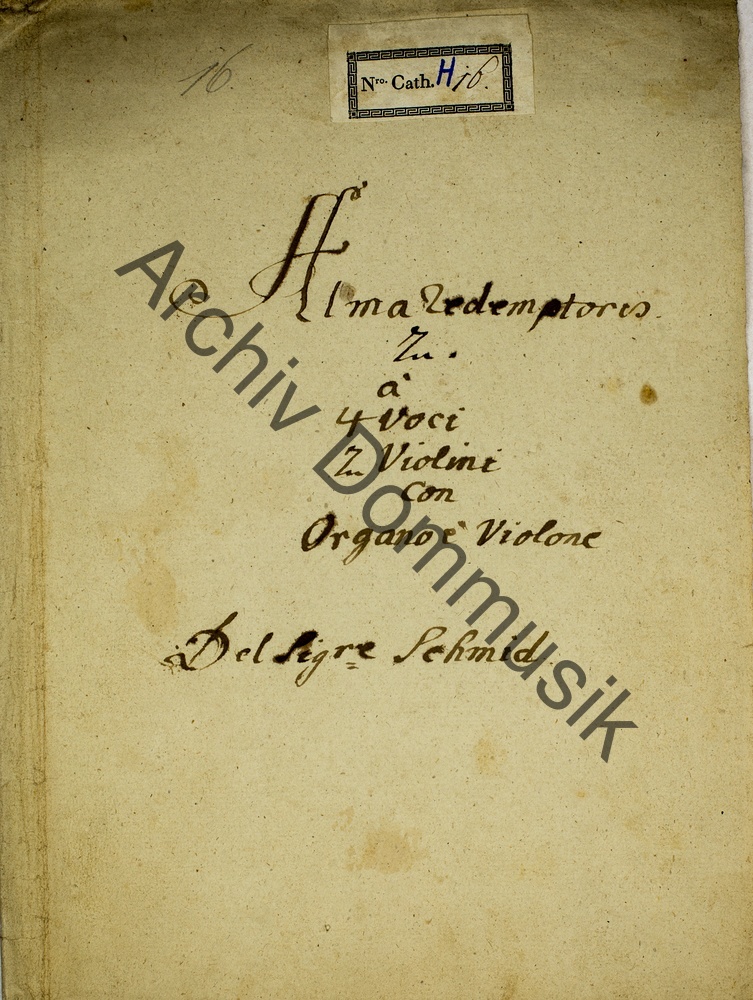 16.
Nro. Cath. H 16.
Alma Redemptoris
2.
à
4 Voci
2 Violini
con
Organo è Violone
Del Sigre Schmid
Archiv Dommusik